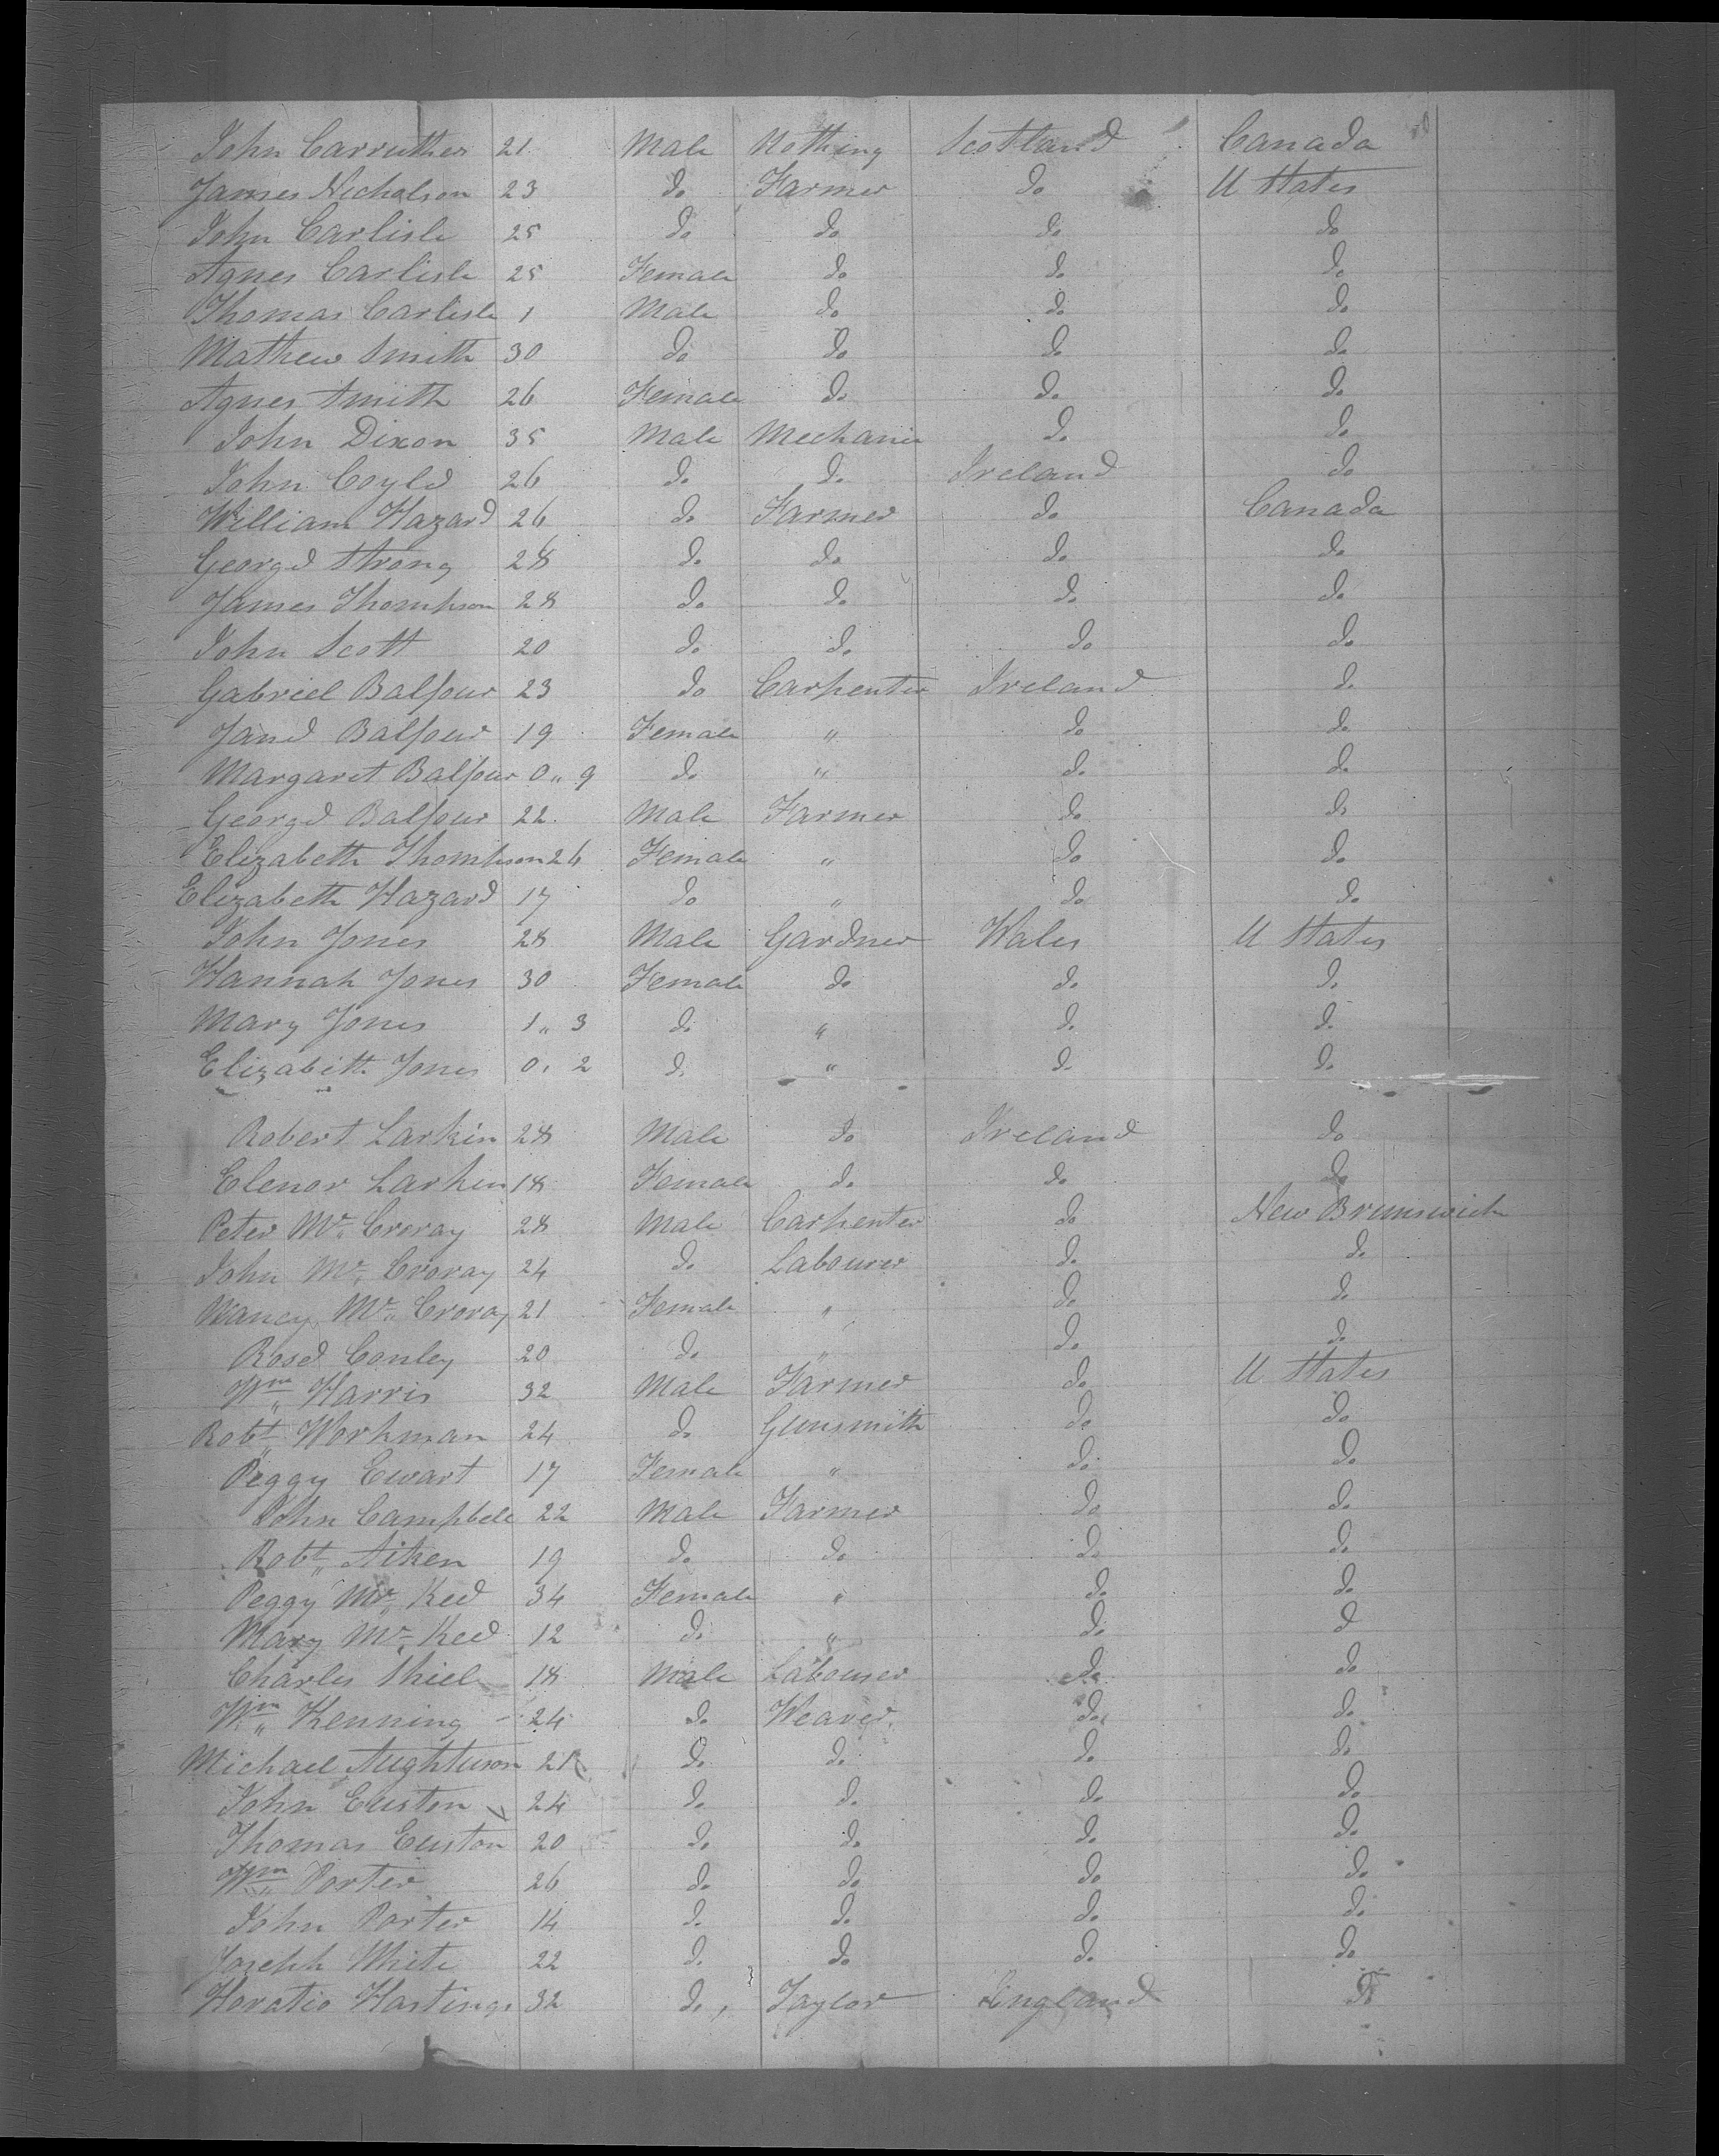 John Carruther 21 Male Nothing Scotland Canada
James Nicholson 23 do Farmer do U States
John Carlisle 25 do do do do
Agnes Carlisle 25 Female do do do
Thomas Carlisle 1 Male do do do
Mathew Smith 30 do do do do
Agnes Smith 26 Female do do do
John Dixon 35 Male Mechanic do do
John Coyle 26 do do Ireland do
William Hazard 26 do Farmer do Canada
George Strong 28 do do do do
James Thompson 28 do do do do
John Scott 20 do do do do
Gabriel Balfour 23 do Carpenter Ireland do
Jane Balfour 19 Female " do do
Margaret Balfour 0 " 9 do " do do
George Balfour 22 Male Farmer do do
Elizabeth Thompson 26 Female " do do
Elizabeth Hazard 17 do " do do
John Jones 28 Male Gardner Wales U States
Hannah Jones 30 Female do do do
Mary Jones 1 " 3 do " do do
Elizabeth Jones 0 " 2 do " do do
Robert Larkin 28 Male do Ireland do
Elenor Larkin 18 Female do do do
Peter Mc Croray 28 Male Carpenter do New Brunswick
John Mc Croray 24 do Labourer do do
Nancy Mc Croray 21 Female " do do
Rose Conley 20 do " do do
Wm Harris 32 Male Farmer do U States
Robt Workman 24 do Gunsmith do do
Peggy Ewart 17 Female " do do
John Campbell 22 Male Farmer do do
Robt Aiken 19 do do do do
Peggy Mc Kee 34 Female " do do
Mary Mc Kee 12 do " do do
Charles Shiel 18 Male Labourer do do
Wm Kenning 24 do Weaver do do
Michael 21 do do do do
John Euston 24 do do do do
Thomas Euston 20 do do do do
Wm Porter 26 do do do do
John Porter 14 do do do do
Joseph White 22 do do do do
Horatio Hastings 32 do Taylor England do